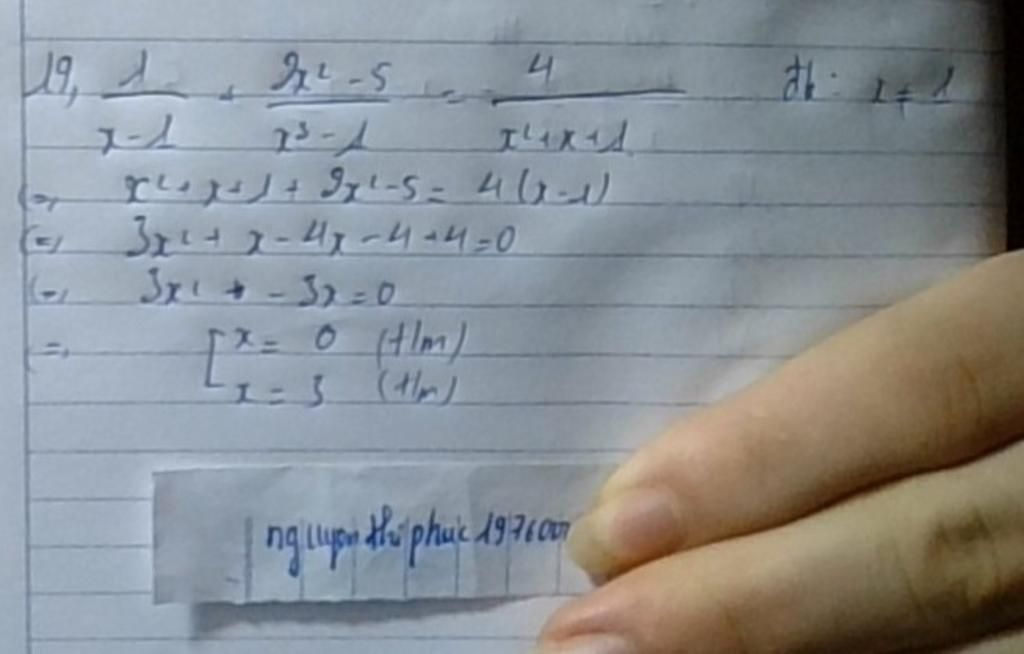 19, 1/(x-1) + (2x² - 5)/(x³ - 1) = 4/(x² + x + 1) đk: x ≠ 1
(=) x² + x + 1 + 2x² - 5 = 4(x - 1)
(=) 3x² + x - 4x - 4 + 4 = 0
(=) 3x² + - 3x = 0
(=) [ x = 0 (t/m)
x = 3 (t/m)
nguyen thi phuc 197600